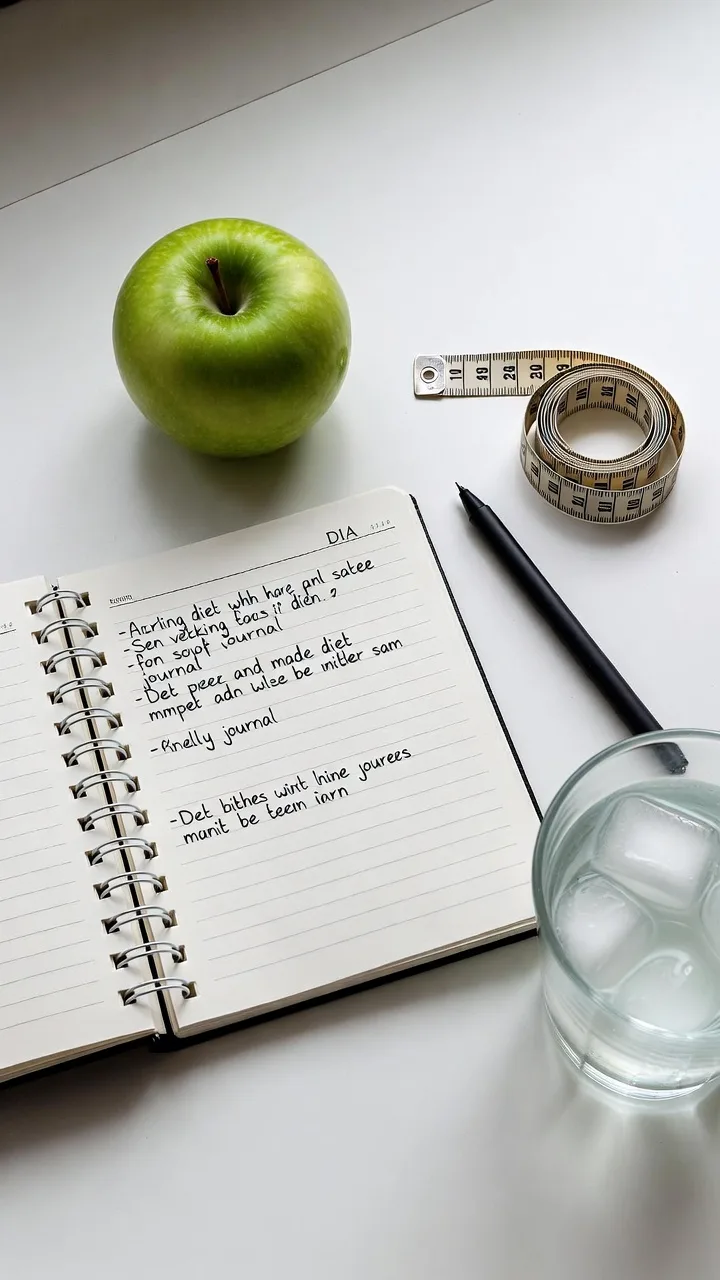 DIA
-Aırling diet whh hare pnl satee
-Sen vetking foos ii dien. ?
-fon sopf journal
journal
-Det peer and made diet
mmpet adn wlse be initler sam
-Rnelly journal
-Det bithes wirt hine jourees
manit be teem iarn
10